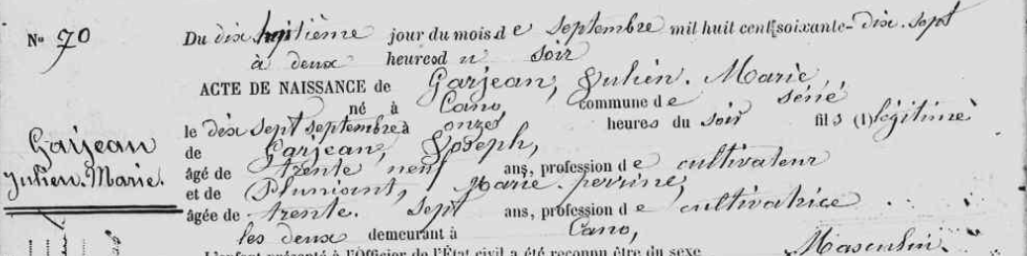 N° 70
Du dix huitième jour du mois de Septembre mil huit cent soixante-dix-sept
à deux heures du soir
ACTE DE NAISSANCE de Garjean, Julien. Marie,
né à Cano, commune de séné
le dix sept septembre à onze heures du soir fils (1) légitime
de Garjean, Joseph,
âgé de trente neuf ans, profession de cultivateur
et de Pluniant, Marie-perrine,
âgée de trente. Sept ans, profession de cultivatrice
les deux demeurant à Cano,
L'enfant présenté à l'Officier de l'État civil a été reconnu être du sexe Masculin.
Garjean
Julien. Marie.